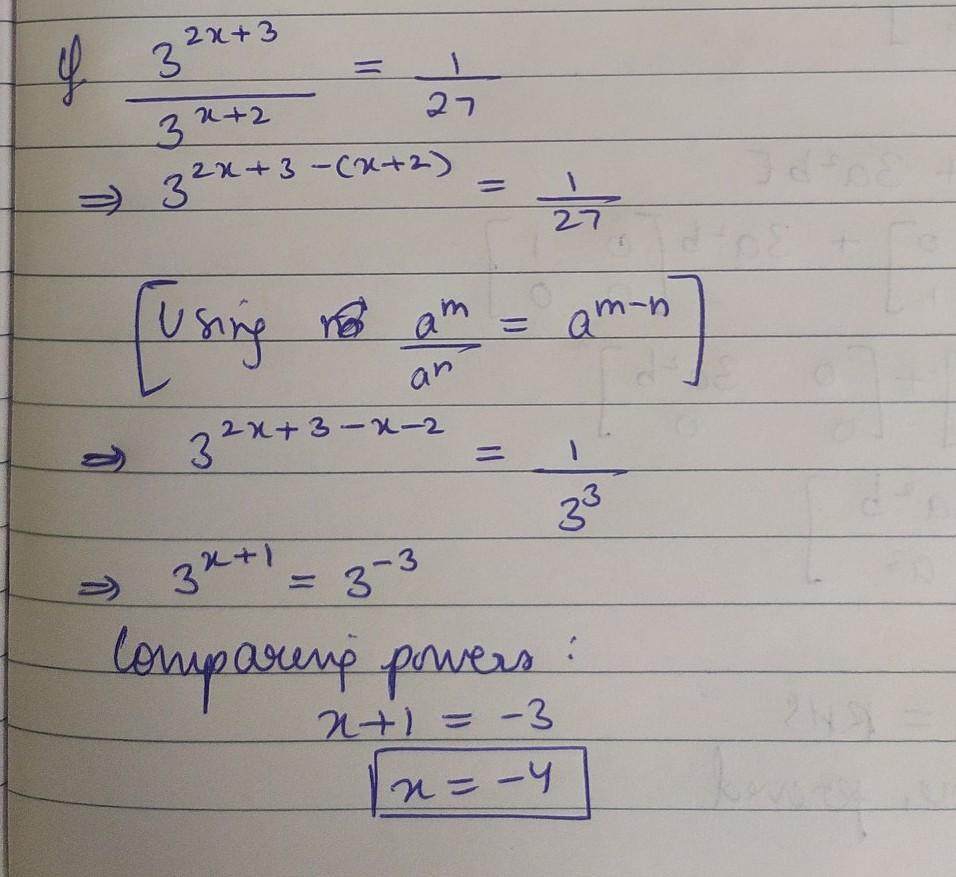 If 3^{2x+3} / 3^{x+2} = 1/27
⇒ 3^{2x+3-(x+2)} = 1/27
[Using a^m / a^n = a^{m-n}]
⇒ 3^{2x+3-x-2} = 1/3^3
⇒ 3^{x+1} = 3^{-3}
Comparing powers :
x+1 = -3
x = -4